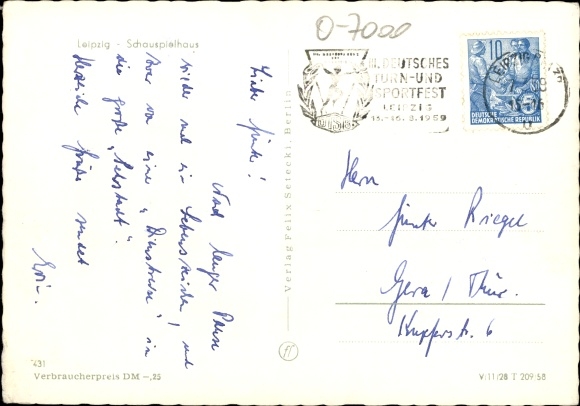 O-7000
Leipzig - Schauspielhaus
Lieber Günter!
Nach langer Pause
wieder mal ein Lebenszeichen, und
zwar von einer „Dienstreise" in
die große „Seestadt".
Herzliche Grüße sendet
Erwin.
Verlag Felix Setecki, Berlin
III. DEUTSCHES
TURN-UND
SPORTFEST
LEIPZIG
13.-16.8.1959
10
DEUTSCHE
DEMOKRATISCHE REPUBLIK
LEIPZIG
Herrn
Günter Riegel
Gera / Thür.
Kupferstr. 6
431
Verbraucherpreis DM -,25
V/11/28 T 209/58